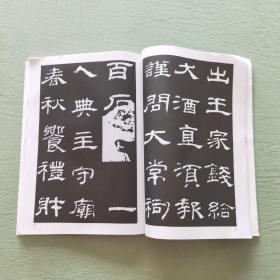 百石一
人典主守廟
春秋饗禮財
出王家錢給
大酒直須報
謹問大常祠